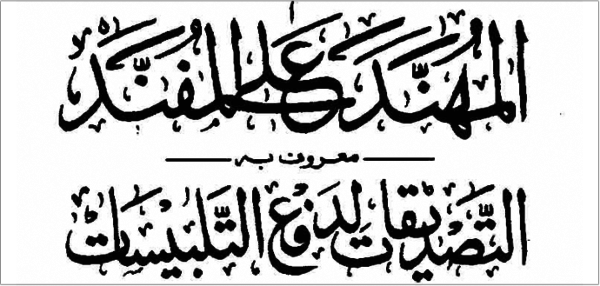 المُهَنَّد عَلَى المُفَنَّد
معروف بہ
التَّصْدِيقَات لِدَفْعِ التَّلْبِيسَات